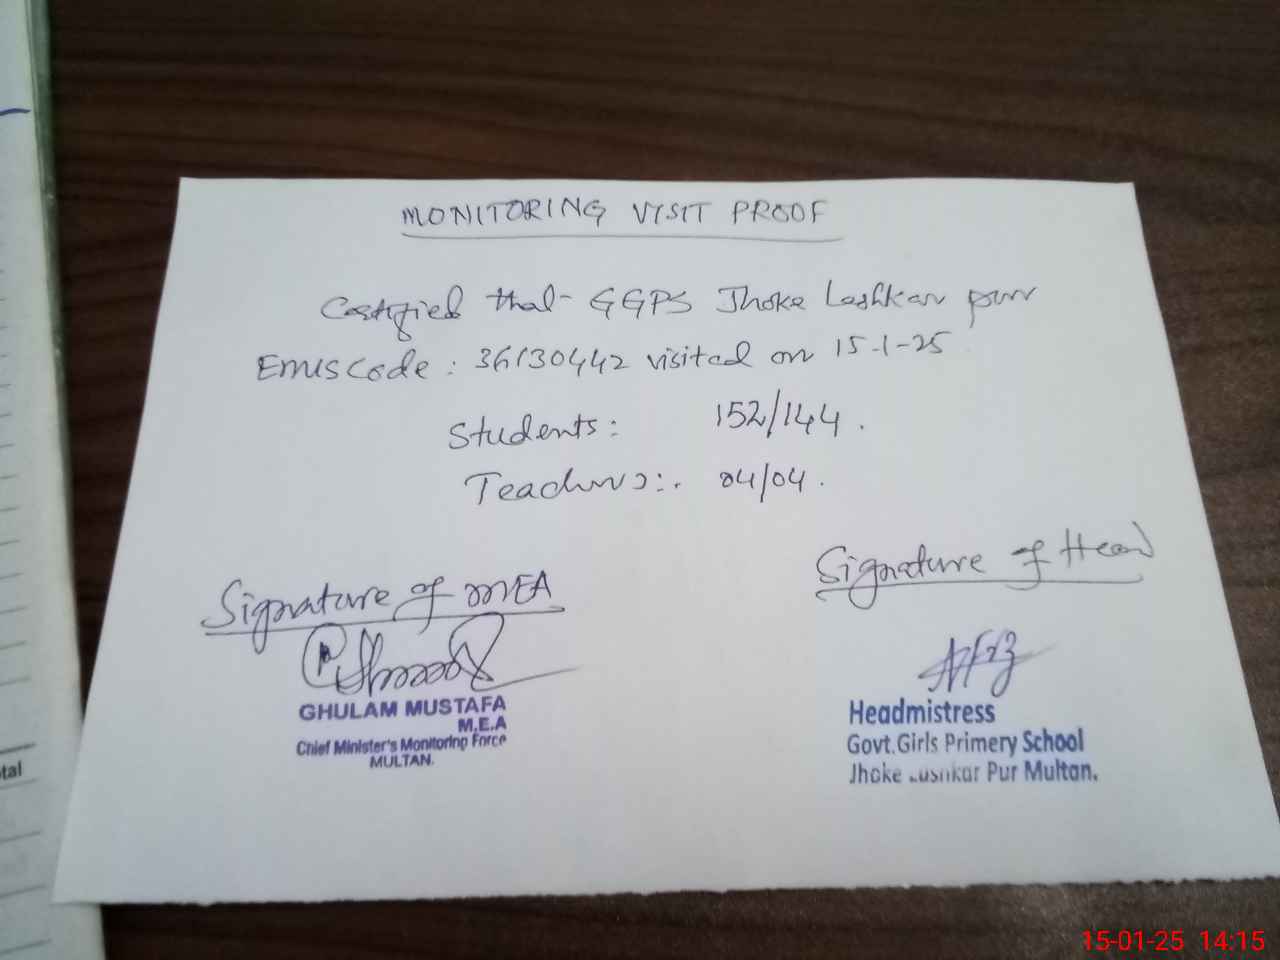 MONITORING VISIT PROOF
Certified that GGPS Jhoke Lashkar pur
Emis Code : 36130442 visited on 15-1-25
Students : 152/144 .
Teachers : . 04/04 .
Signature of Head
Signature of MEA
GHULAM MUSTAFA
M.E.A
Chief Minister's Monitoring Force
MULTAN.
Headmistress
Govt.Girls Primery School
Jhoke Lushkar Pur Multan.
15-01-25 14:15